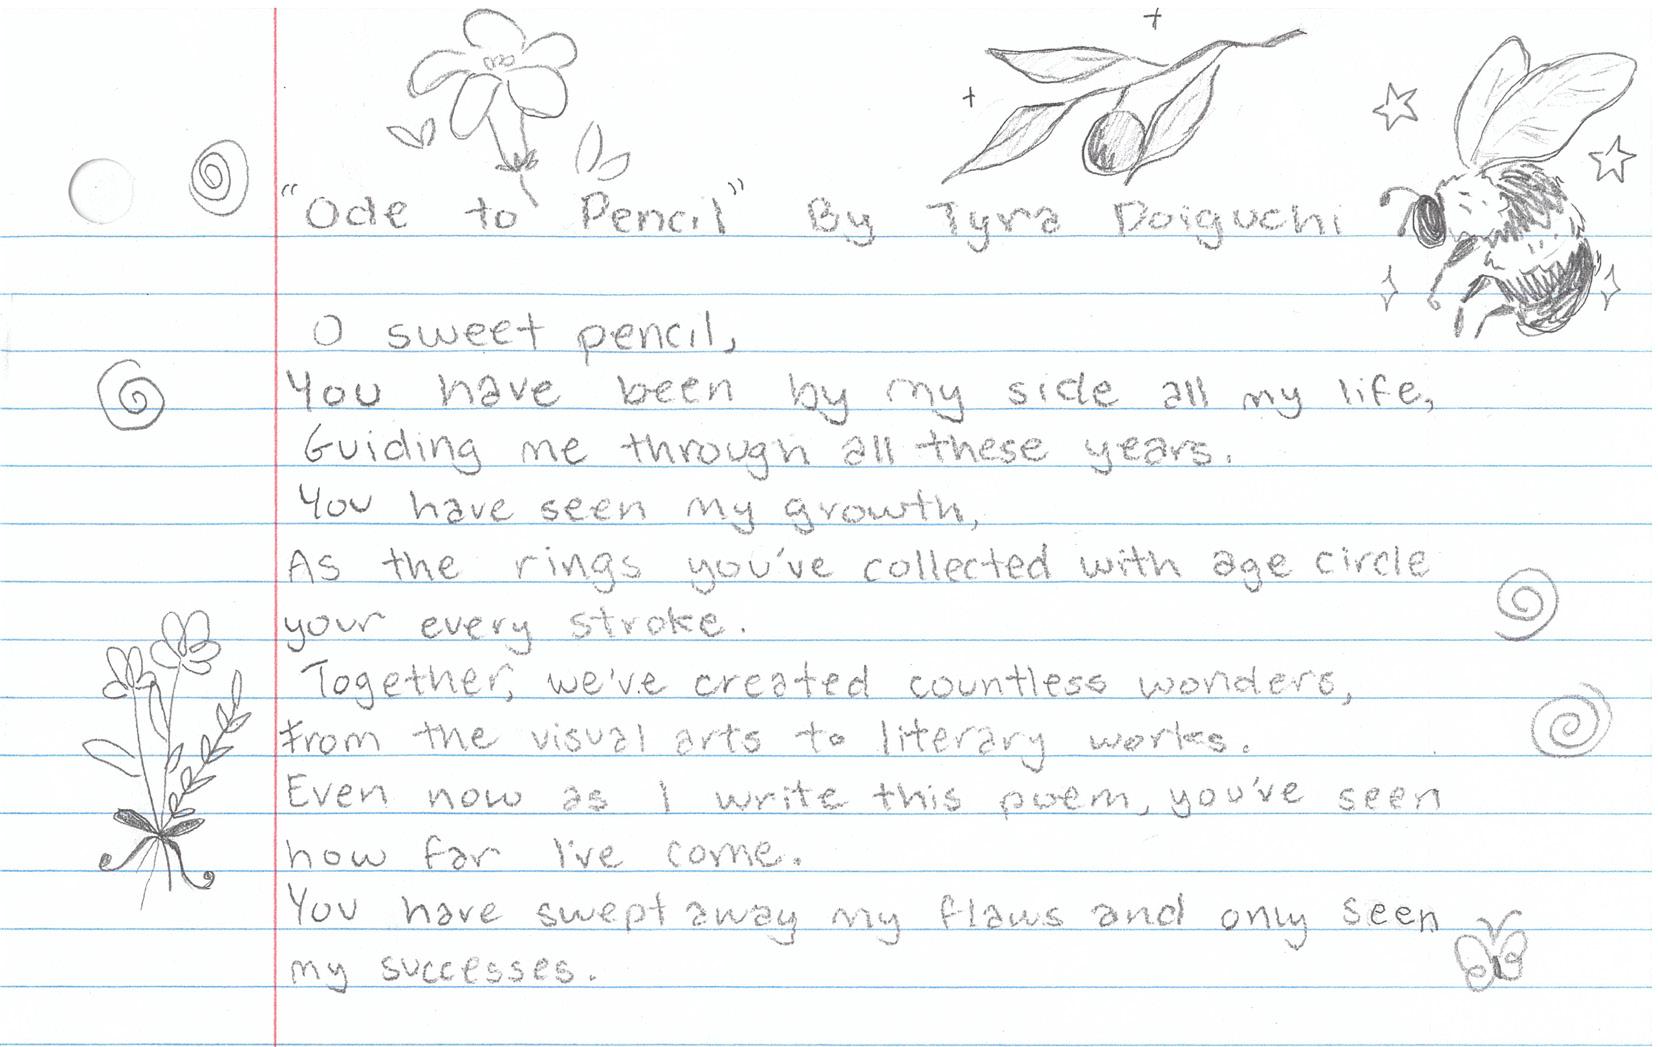 "Ode to Pencil" By Tyra Doiguchi
O sweet pencil,
You have been by my side all my life,
Guiding me through all these years.
You have seen my growth,
As the rings you've collected with age circle
your every stroke.
Together, we've created countless wonders,
From the visual arts to literary works.
Even now as I write this poem, you've seen
how far I've come.
You have swept away my flaws and only seen
my successes.